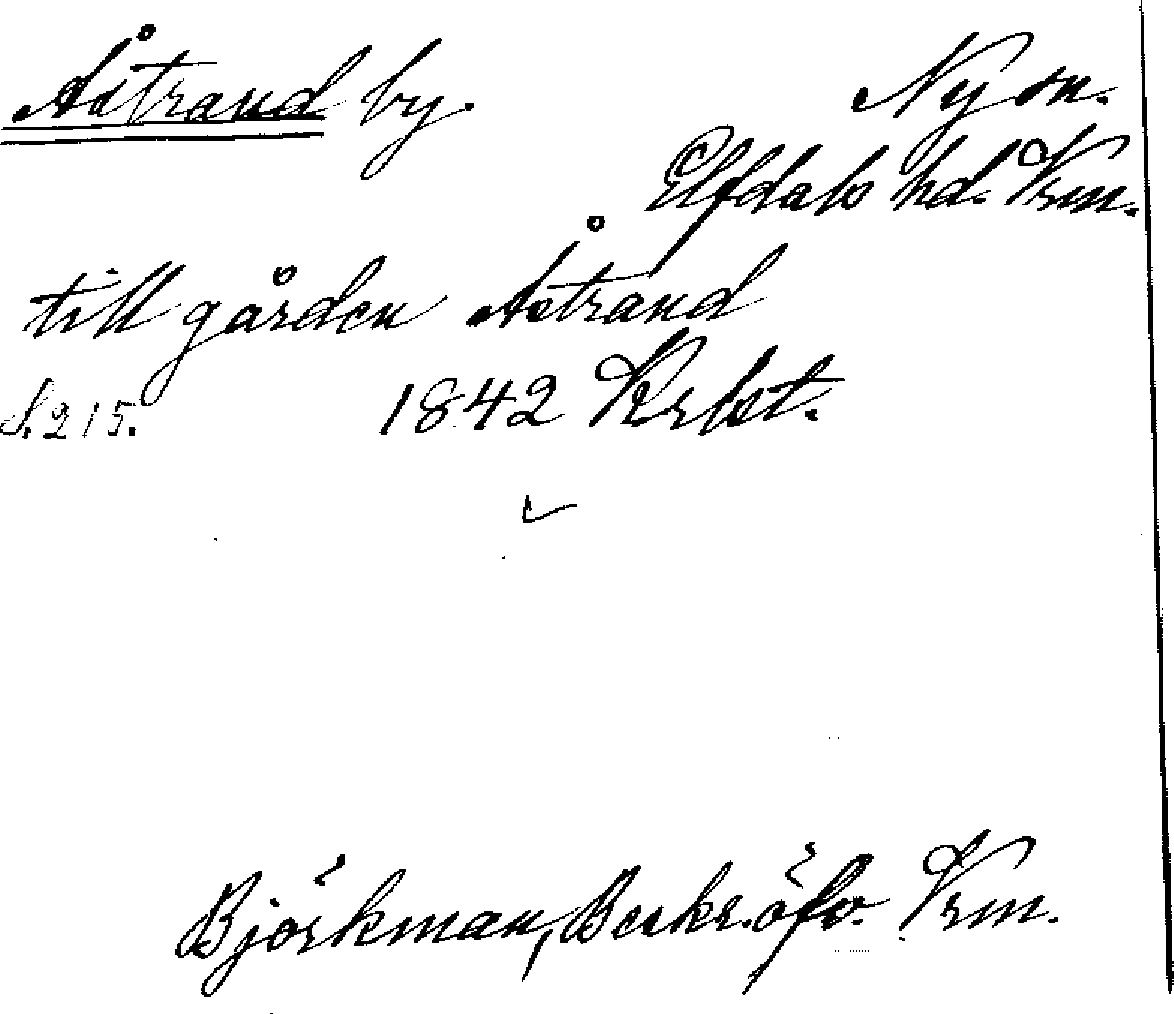 Åstrand by. Ny sn.
Elfdals hd. Vrm.
till gården Åstrand
S. 215. 1842 Krbst.
Björkman, Beskr. öfv. Vrm.